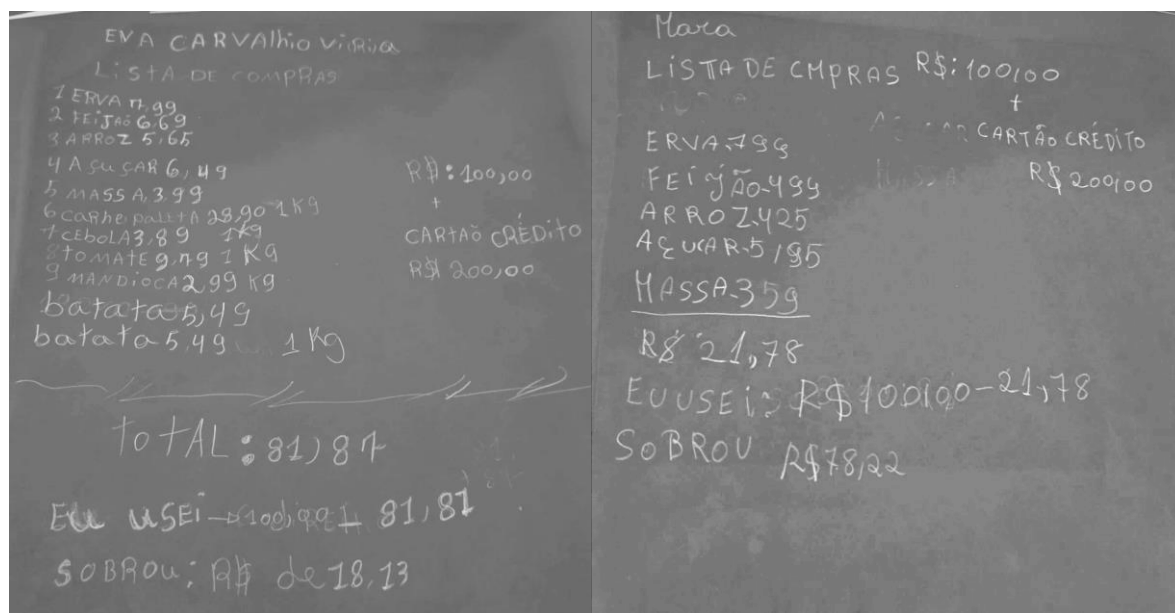 EVA CARVAlhio Viiriua
LiStA DE COMPRAS
1 ERVA 7,99
2 FEIJAÕ 6,69
3 ARROZ 5,65
4 AÇUÇAR 6,49
5 MASSA,3,99
6 CARNe paletA 28,90 1 Kg
7 CEboLA 3,89 1Kg
8 tOMATE 9,79 1 KG
9 MANDiOCA 2,99 KG
batata 5,49
batata 5,49 1 Kg
R$: 100,00
+
CARTAÕ CRÉDITO
R$ 200,00
totAL: 81,87
EU USEi 81,81
SOBROU: R$ de 18,13
Mara
LiSTTA DE CMPRAS R$: 100,00
+
CARTÃO CRÉDITO
R$ 200,00
ERVA-799
FEiJÃO-499
ARROZ-425
AÇUCAR-5,95
MASSA-359
R$ 21,78
EU USEI: R$ 100,00-21,78
SOBROU R$ 78,22